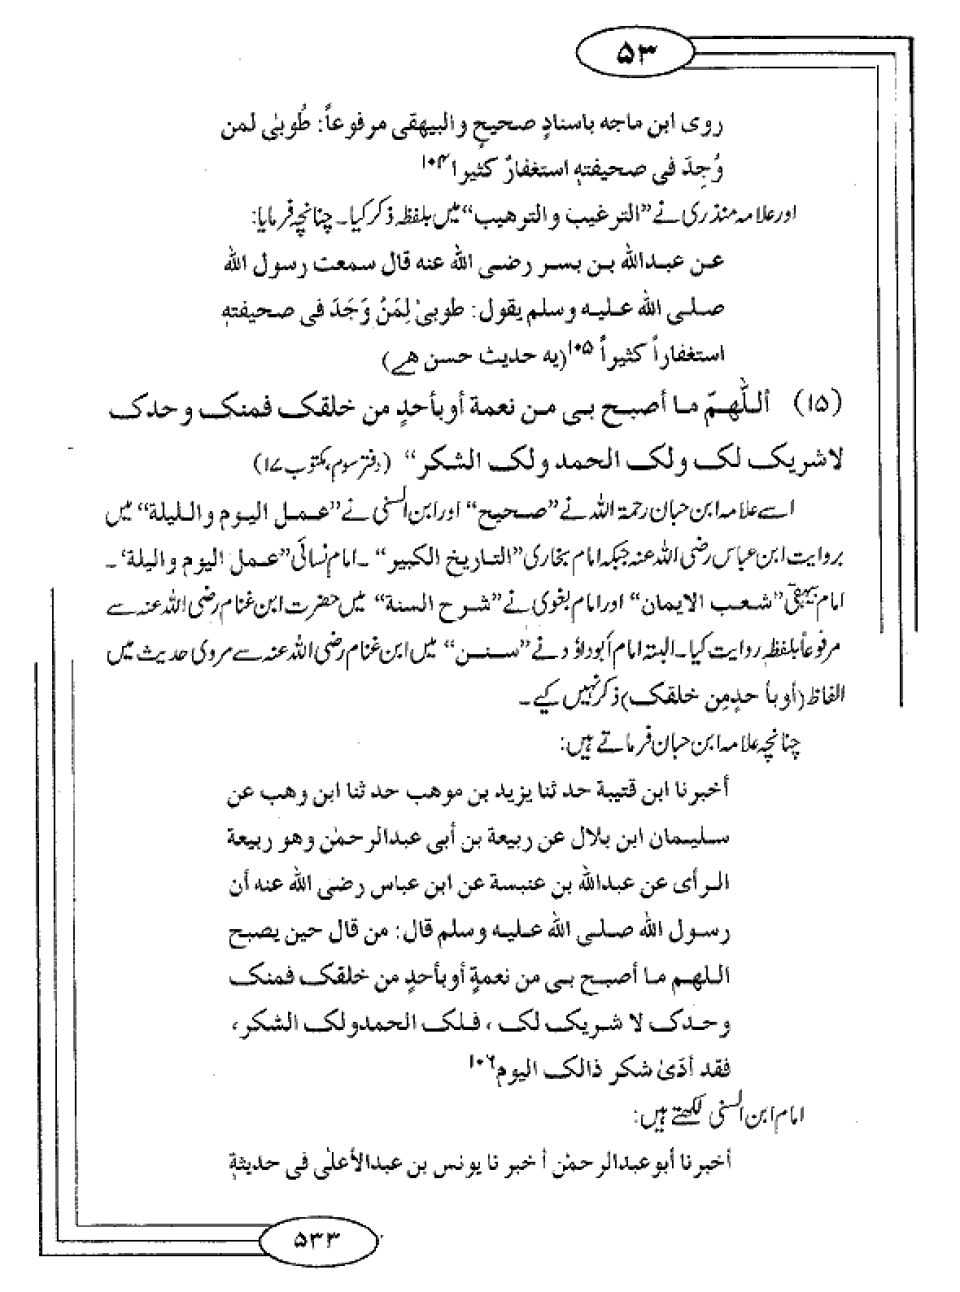 ۵۳
روى ابن ماجه باسنادٍ صحيحٍ والبيهقى مرفوعاً: طُوبىٰ لمن
وُجِدَ فى صحيفتهٖ استغفارٌ كثيرا ۱۰۴
اور علامہ منذری نے ”الترغيب والترهيب“ میں بلفظہ ذکر کیا۔ چنانچہ فرمایا:
عن عبدالله بن بسر رضى الله عنه قال سمعت رسول الله
صلى الله عليه وسلم يقول: طوبىٰ لِمَنُ وَجَدَ فى صحيفتهٖ
استغفاراً كثيراً ۱۰۵ (یه حدیث حسن هے)
(۱۵) أللّٰهمّ ما أصبح بى من نعمة أوبأحدٍ من خلقک فمنک وحدک
لاشریک لک ولک الحمد ولک الشکر“ (دفتر سوم، مکتوب ۱۷)
اسے علامہ ابن حبان رحمۃ اللہ نے ”صحیح“ اور ابن السنی نے ”عمل الیوم واللیلة“ میں
بروایت ابن عباس رضی اللہ عنہ جبکہ امام بخاری ”التاریخ الکبیر“۔ امام نسائی ”عمل الیوم والیلة‘۔
امام بیہقی ”شعب الایمان“ اور امام بغوی نے ”شرح السنة“ میں حضرت ابن غنام رضی اللہ عنہ سے
مرفوعاً بلفظہ روایت کیا۔ البتہ امام أبوداؤد نے ”سنن“ میں ابن غنام رضی اللہ عنہ سے مروی حدیث میں
الفاظ (أوبأ حدٍمِن خلقک) ذکر نہیں کیے۔
چنانچہ علامہ ابن حبان فرماتے ہیں:
أخبرنا ابن قتيبة حدثنا يزيد بن موهب حدثنا ابن وهب عن
سليمان ابن بلال عن ربيعة بن أبى عبدالرحمٰن وهو ربيعة
الرأى عن عبدالله بن عنبسة عن ابن عباس رضى الله عنه أن
رسول الله صلى الله عليه وسلم قال: من قال حين يصبح
اللهم ما أصبح بى من نعمةٍ أوبأحدٍ من خلقک فمنک
وحدک لا شریک لک، فلک الحمدولک الشکر،
فقد أدَىٰ شکر ذالک الیوم ۱۰۶
امام ابن السنی لکھتے ہیں:
أخبرنا أبوعبدالرحمٰن أخبرنا يونس بن عبدالأعلٰى فى حديثهٖ
۵۳۳